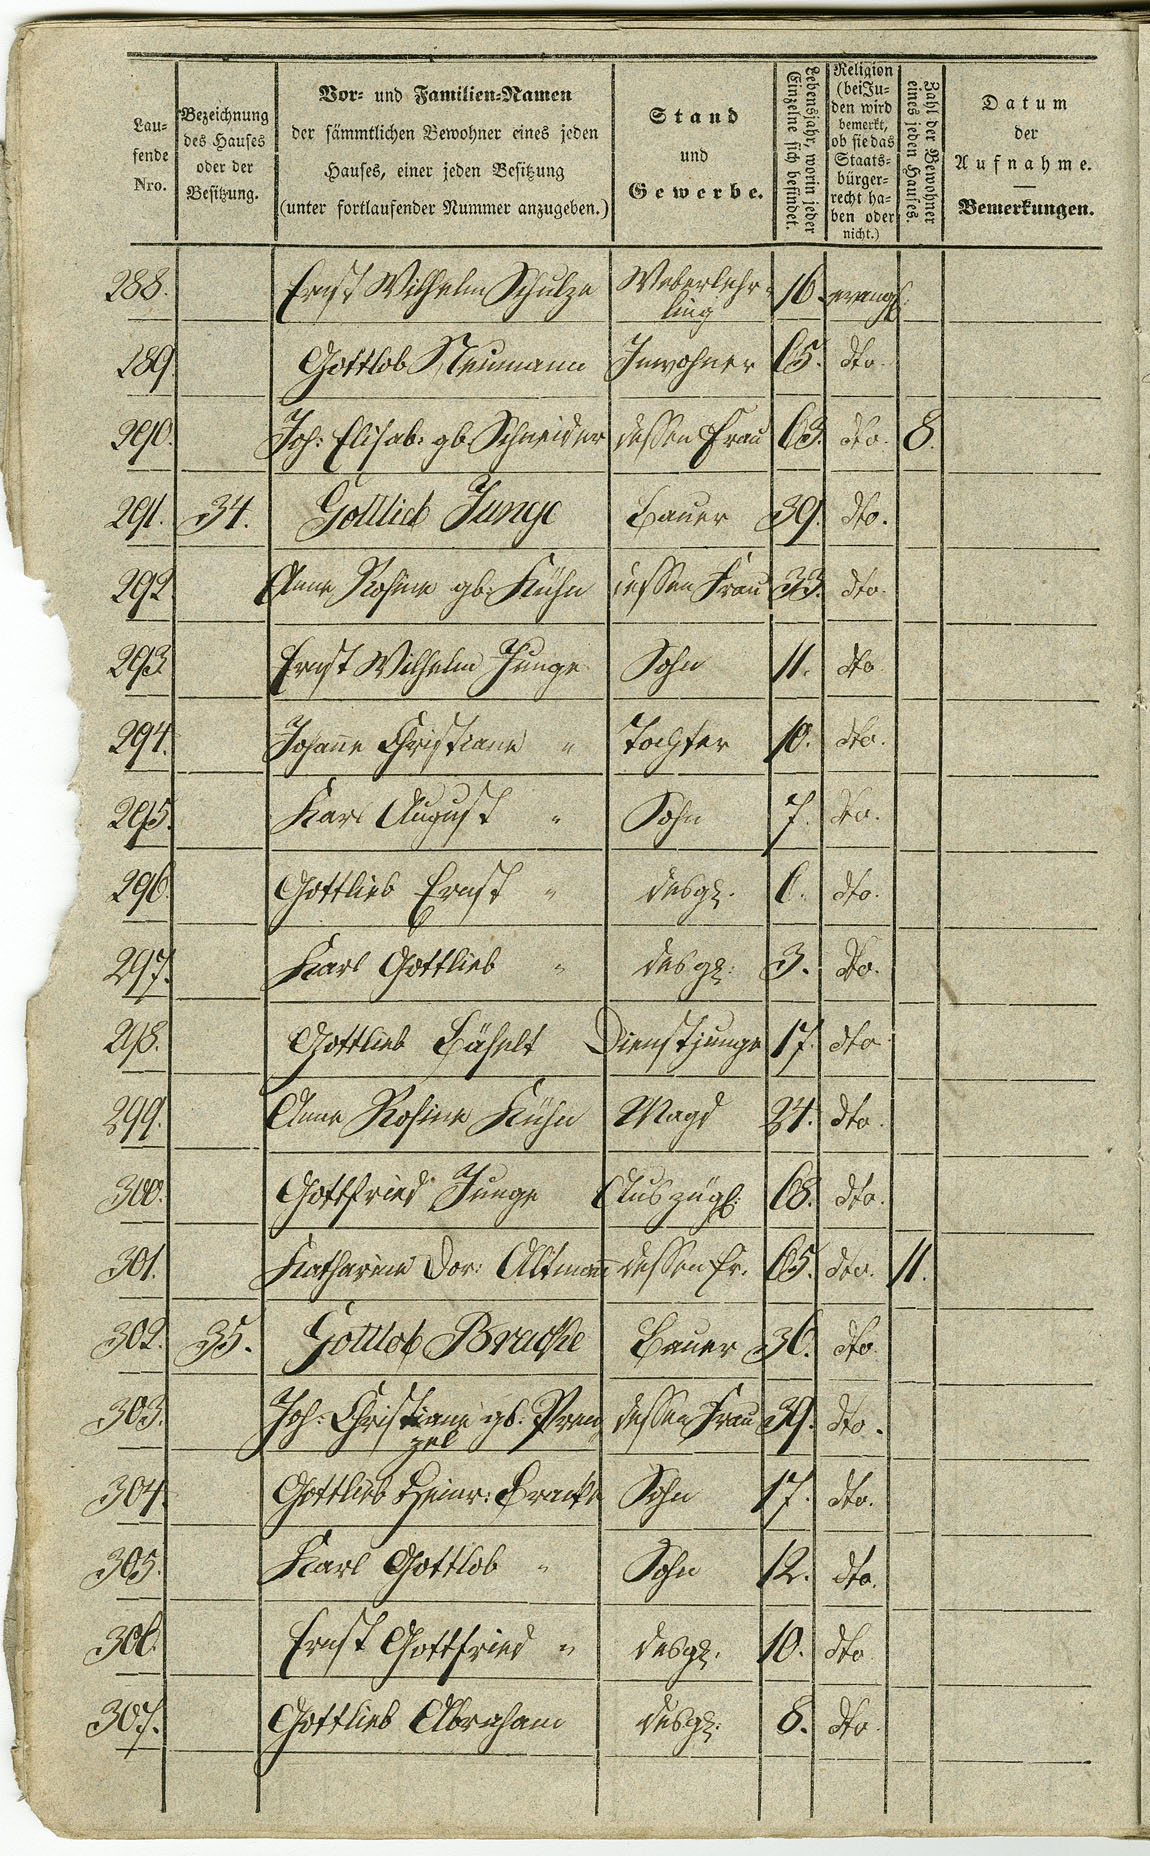 Laufende Nro.
Bezeichnung des Hauses oder der Besitzung.
Vor- und Familien-Namen
der sämmtlichen Bewohner eines jeden
Hauses, einer jeden Besitzung
(unter fortlaufender Nummer anzugeben.)
Stand
und
Gewerbe.
Lebensjahr, worin jeder Einzelne sich befindet.
Religion (bei Juden wird bemerkt, ob sie das Staatsbürgerrecht haben oder nicht.)
Zahl der Bewohner eines jeden Hauses.
Datum
der
Aufnahme.
Bemerkungen.
288. Ernst Wilhelm Schulze Weberlehr-
ling 16. evangl:
289. Gottlob Neumann Inwohner 65. dto.
290. Joh: Elisab: gb. Schneider dessen Frau 63. dto. 8.
291. 34. Gottlieb Junge Bauer 39. dto.
292. Anne Rosine gb. Kühn dessen Frau 33. dto.
293. Ernst Wilhelm Junge Sohn 11. dto.
294. Johanne Christiane " Tochter 10. dto.
295. Karl August " Sohn 7. dto.
296. Gottlieb Ernst " desgl. 6. dto.
297. Karl Gottlieb " desgl: 3. dto.
298. Gottlieb Dienstjunge 17. dto.
299. Anne Rosine Kühn Magd 24. dto.
300. Gottfried Junge Auszügl: 68. dto.
301. Katharine Dor: Altmann dessen Fr. 65. dto. 11.
302. 35. Gottlob Bracke Bauer 36. dto.
303. Joh: Christiane gb: Pren
zel dessen Frau 39. dto.
304. Gottlieb Heinr: Bracke Sohn 17. dto.
305. Karl Gottlob " Sohn 12. dto.
306. Ernst Gottfried " desgl. 10. dto.
307. Gottlieb Abraham desgl: 8. dto.